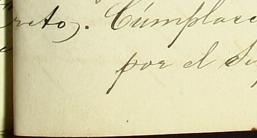 creto). Cúmplase
por el Su